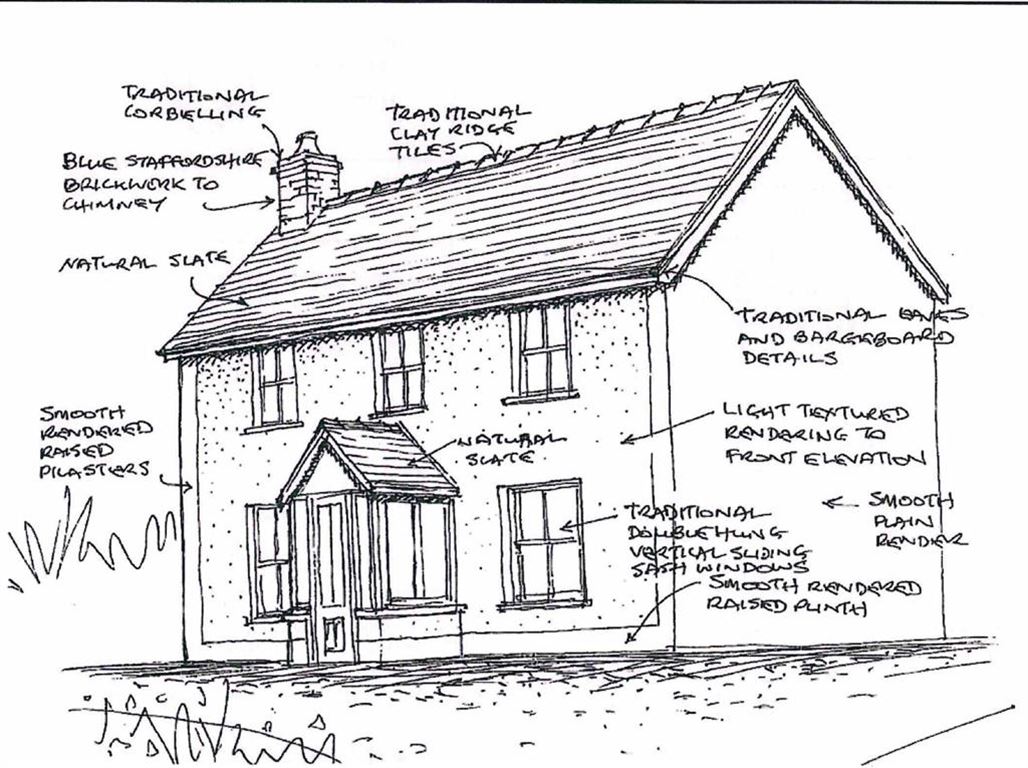 TRADITIONAL
CORBELLING
TRADITIONAL
CLAY RIDGE
TILES
BLUE STAFFORDSHIRE
BRICKWORK TO
CHIMNEY
NATURAL SLATE
TRADITIONAL EAVES
AND BARGEBOARD
DETAILS
SMOOTH
RENDERED
RAISED
PILASTERS
LIGHT TEXTURED
RENDERING TO
FRONT ELEVATION
NATURAL
SLATE
SMOOTH
PLAIN
RENDER
TRADITIONAL
DOUBLE HUNG
VERTICAL SLIDING
SASH WINDOWS
SMOOTH RENDERED
RAISED PLINTH